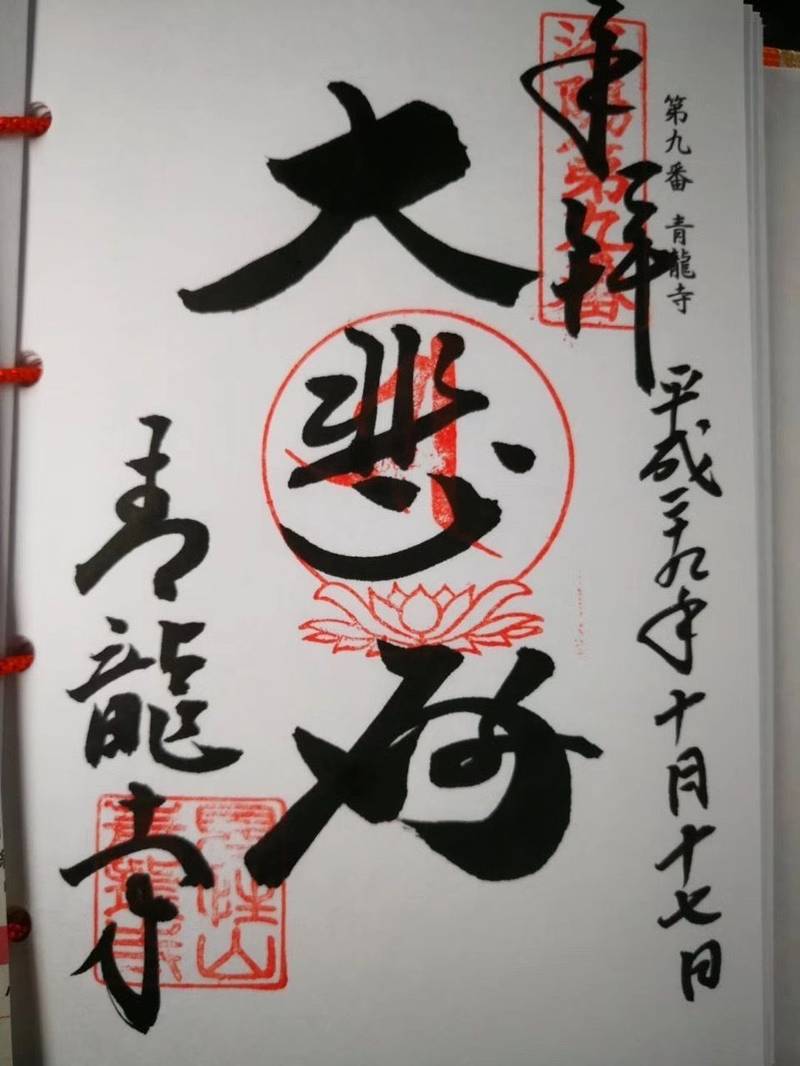 第九番 青龍寺
奉拝
洛陽第九番
平成二十九年十月十七日
大悲殿
青龍寺